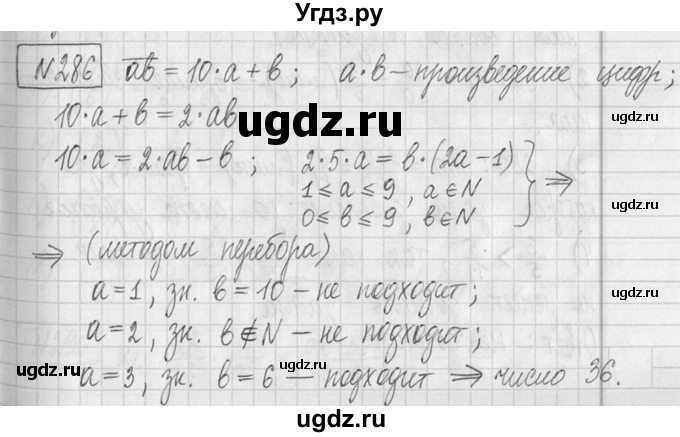 Угдз.ру
№286 ab = 10·a + b; a·b – произведение цифр;
10·a + b = 2·ab
ugdz.ru
ugdz.ru
ugdz.ru
10·a = 2·ab – b; 2·5·a = b·(2a – 1)
1 ≤ a ≤ 9, a ∈ N
0 ≤ b ≤ 9, b ∈ N } ⇒
⇒ (методом перебора)
a = 1, зн. b = 10 – не подходит;
a = 2, зн. b ∉ N – не подходит;
ugdz.ru
ugdz.ru
ugdz.ru
a = 3, зн. b = 6 – подходит ⇒ число 36.
ugdz.ru